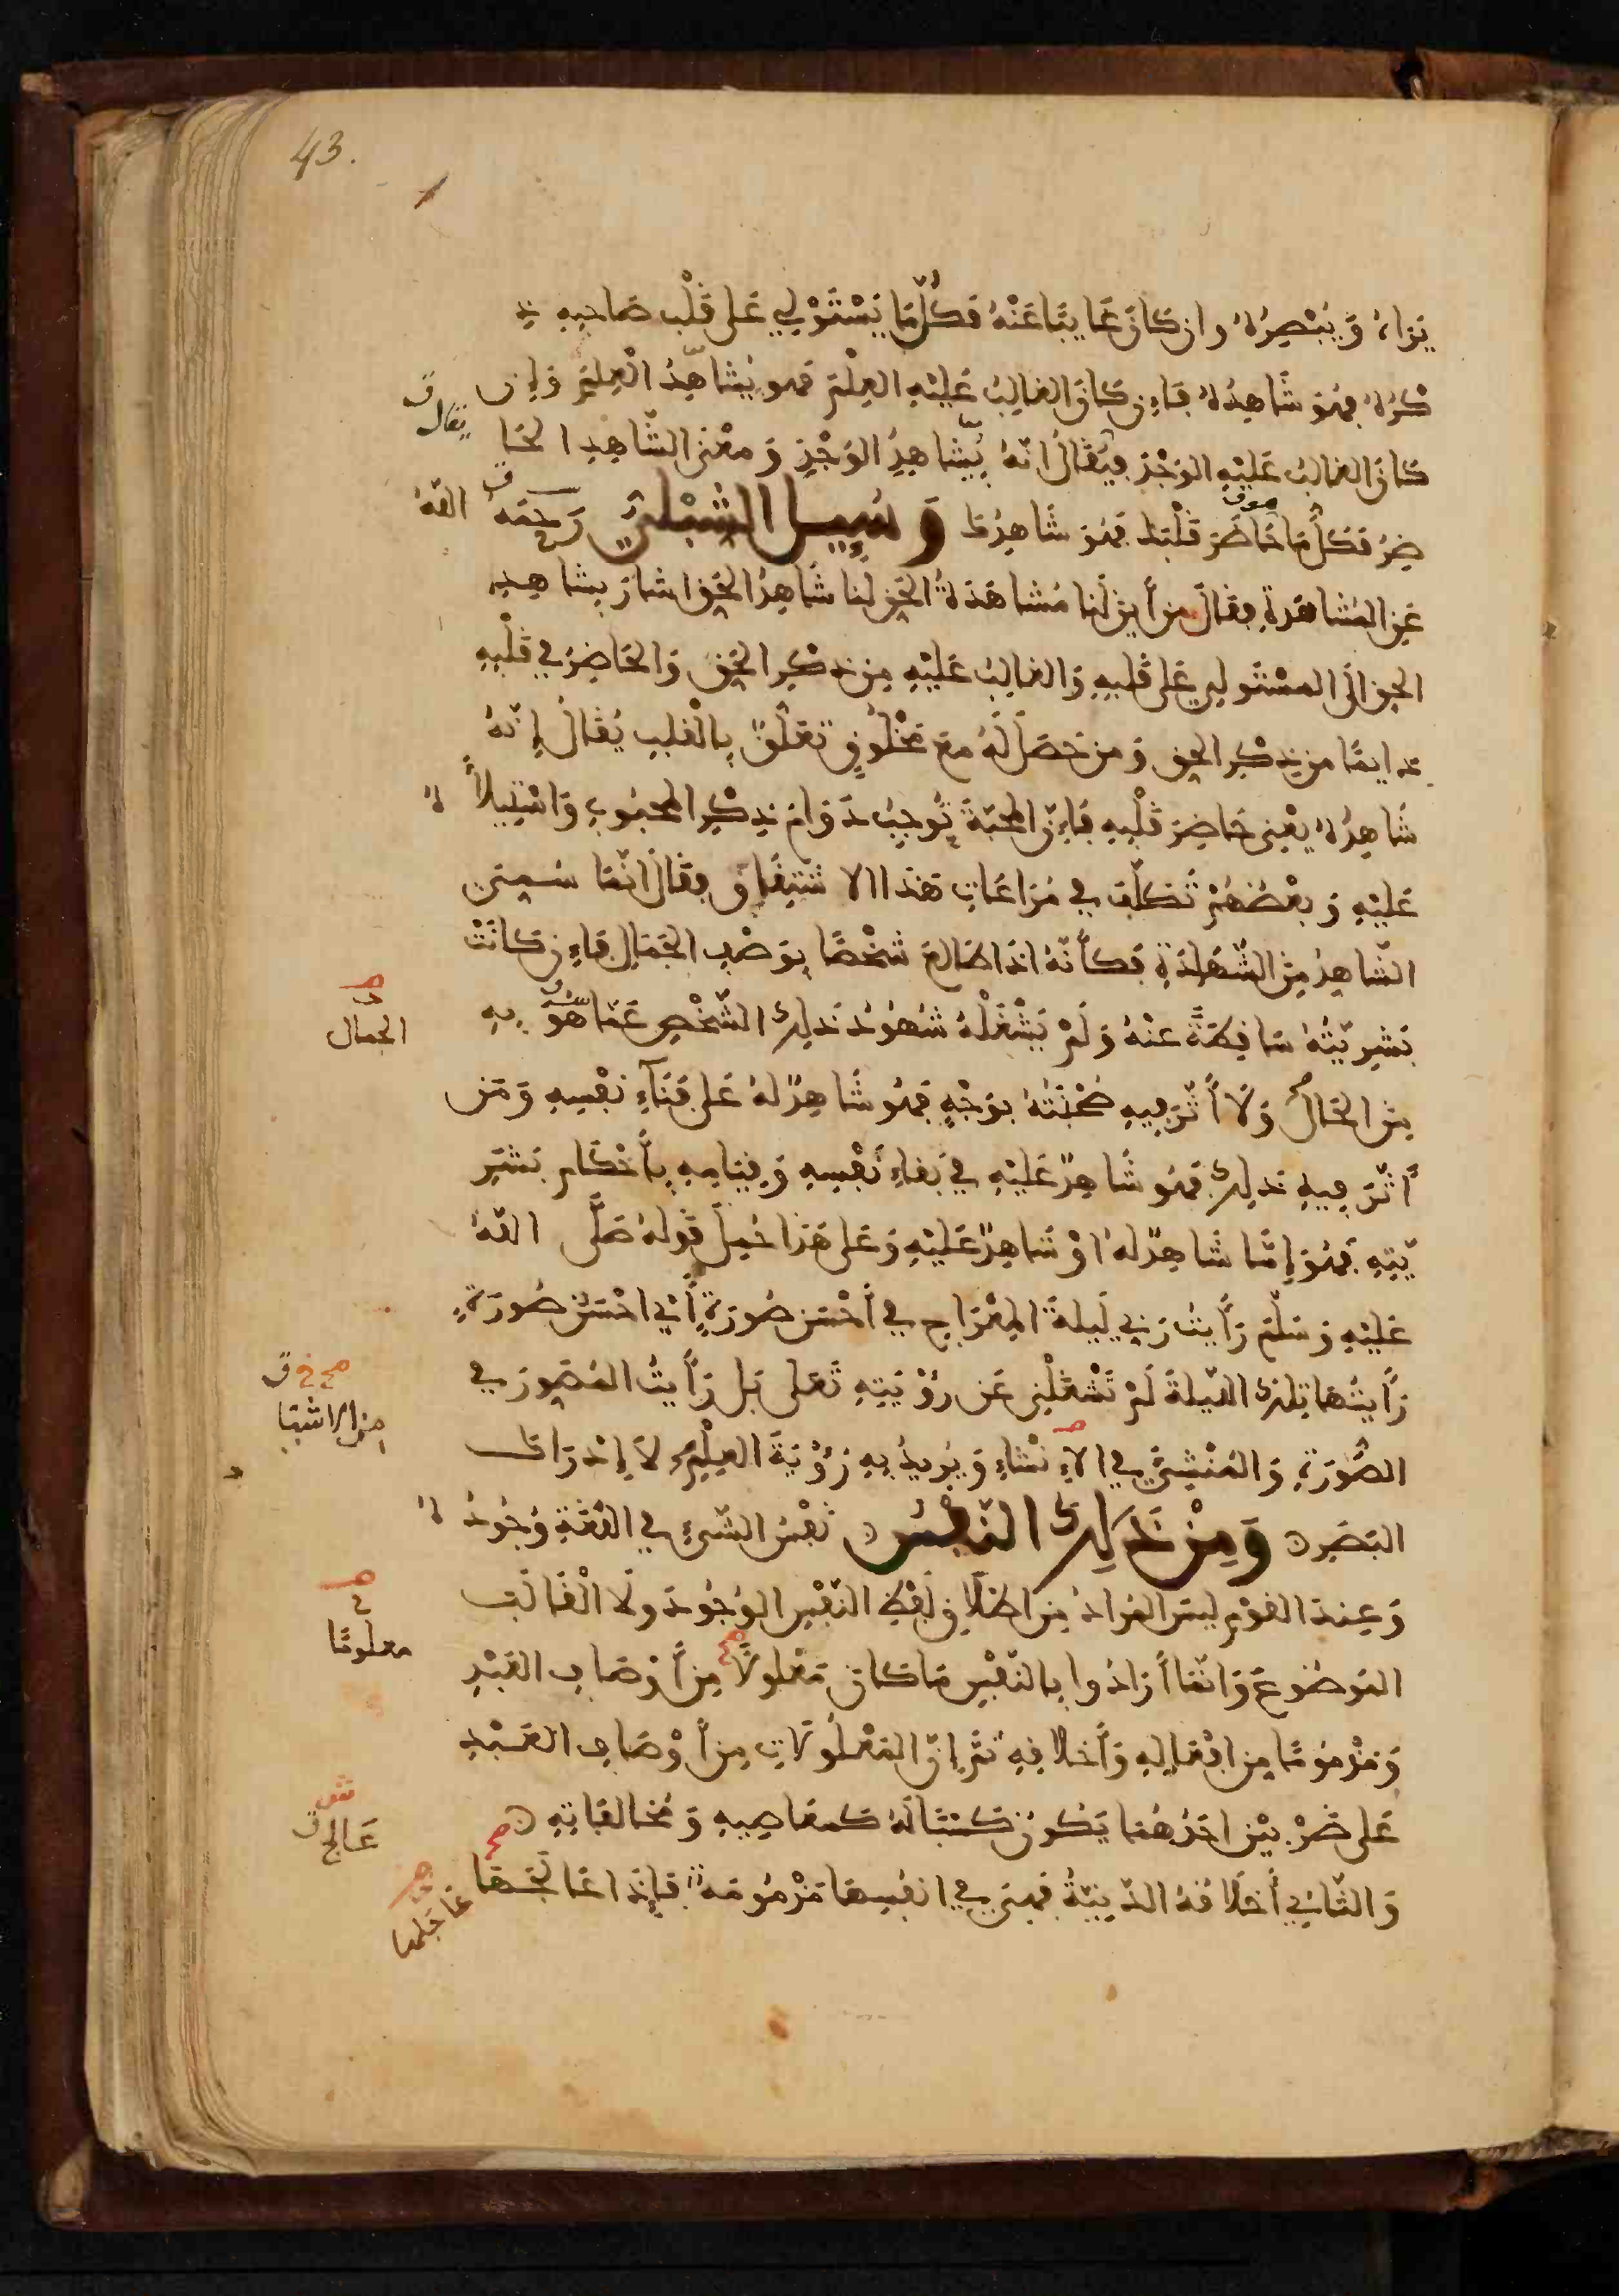 43.
يراه ويبصره وان كان غايبا عنه فكل ما يستولي على قلب صاحبه ذ
كره فهو شاهده فإن كان الغالب عليه العلم فهو يشاهد العلم وإن
يقال ق
كان الغالب عليه الوجد فيقال انه يشاهد الوجد ومعنى الشاهد الحا
ضر فكل ما حاضر قلبك فهو شاهدك وسيل الشبلي رحمه الله
هو ق
عن المشاهدة فقال من أين لنا مشاهدة الحق لنا شاهد الحق اشار بشاهد
الحق الى المستولي على قلبه والغالب عليه من ذكر الحق والحاضر في قلبه
دايما من ذكر الحق ومن حصل له مع مخلوق تعلق بالقلب يقال إنه
شاهده يعني حاضر قلبه فإن المحبة توجب دوام ذكر المحبوب واستيلاءه
عليه وبعضهم تكلف في مراعات هذا الاشتقاق فقال انما سمي
الشاهد من الشهادة فكأنه اذا طالع شخصا بوصف الجمال فإن كانت
بشريته ساقطة عنه ولم يشغله شهود ذلك الشخص عما هو به
صح
الجمال
من الحال ولا أثر فيه صحبته بوجه فهو شاهد له على فناء نفسه ومن
أثر فيه ذلك فهو شاهد عليه في بقاء نفسه وقيامه بأحكام بشر
يته فهو إما شاهد له او شاهد عليه وعلى هذا حمل قوله صلى الله
عليه وسلم رأيت ربي ليلة المعراج في أحسن صورة أي احسن صورة
رأيتها تلك الليلة لم تشغلني عن رؤيته تعلى بل رأيت المصور في
الصورة والمنشئ في الإنشاء ويريد به رؤية العلم لا إدراك
البصر ومن ذلك النفس نفس الشيء في اللغة وجوده
وعند القوم ليس المراد من اطلاق لفظ النفس الوجود ولا القالب
الموضوع وانما أرادوا بالنفس ما كان معلولا من أوصاف العبد
معلوما
ومذموما من افعاله وأخلاقه ثم ان المعلولات من أوصاف العبد
على ضربين احدهما يكون كسبا له كمعاصيه ومخالفاته
والثاني أخلاقه الدنية فهي في انفسها مذمومة فإذا عالجها
عالج ق